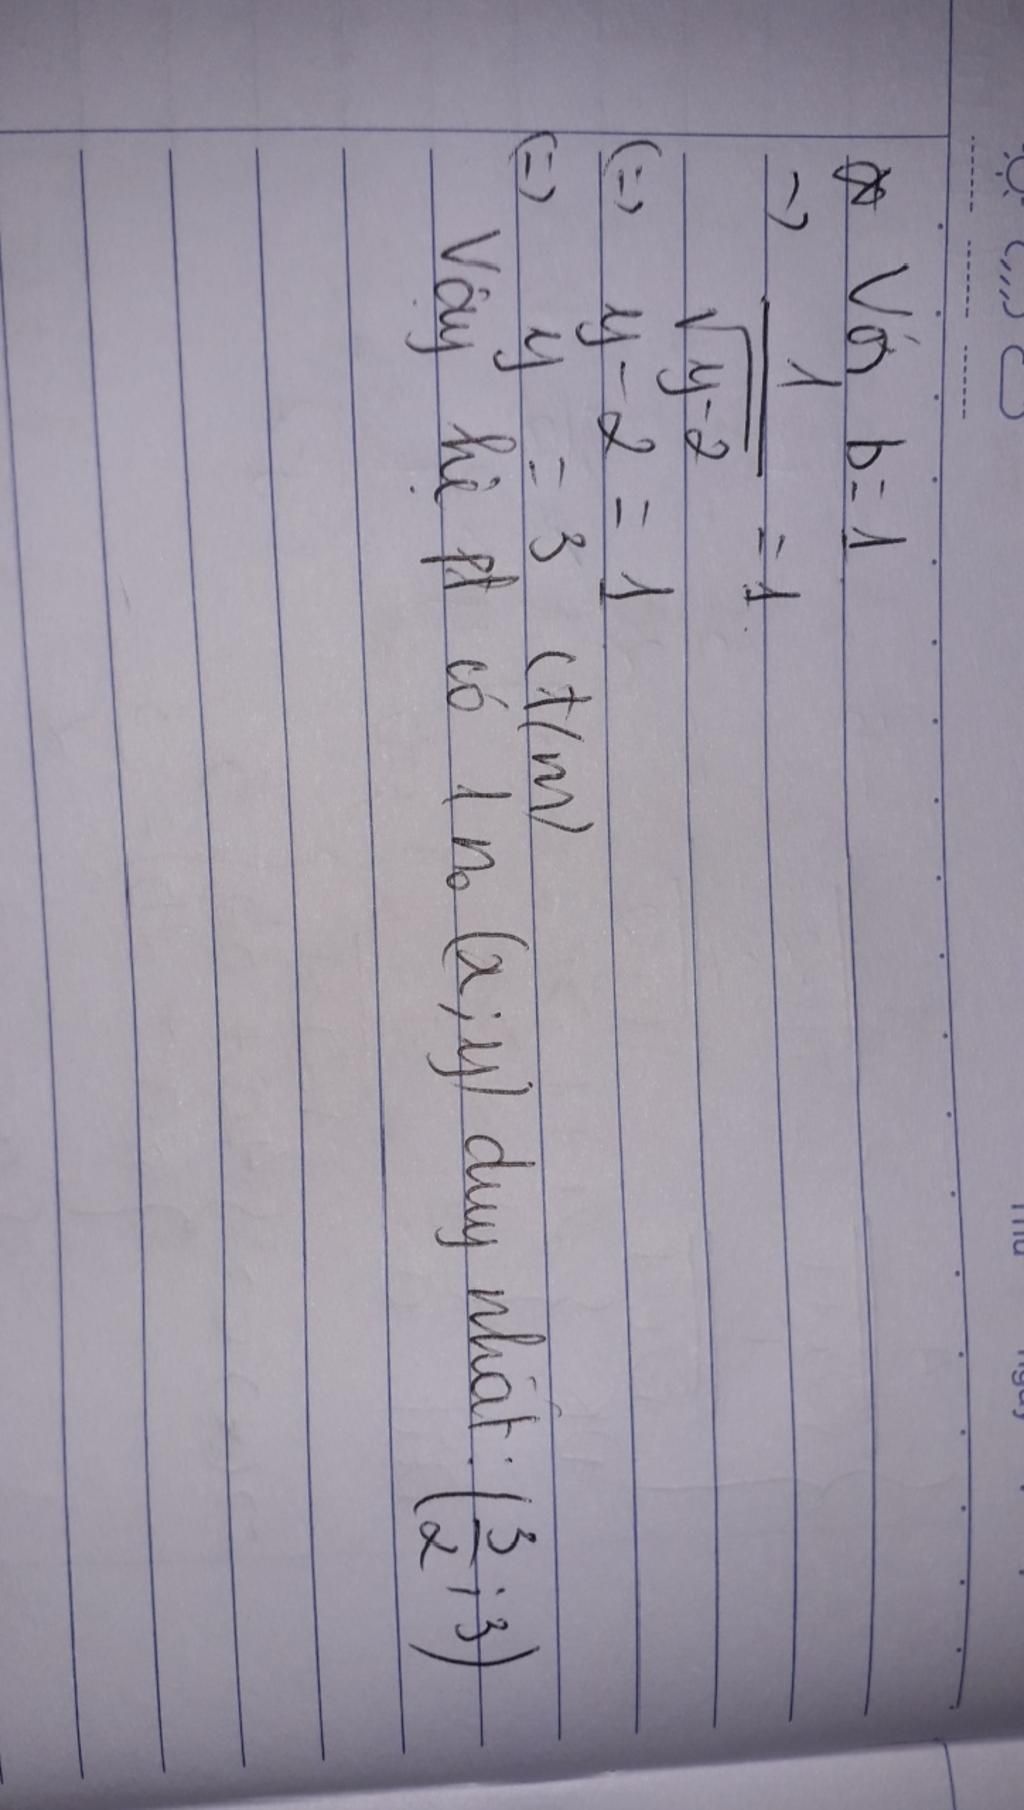 * Với b = 1
→ 1/√(y-2) = 1
(=) y - 2 = 1
(=) y = 3 (t/m)
Vậy hệ pt có 1 no (x; y) duy nhất: (3/2; 3)
Thứ
ngày